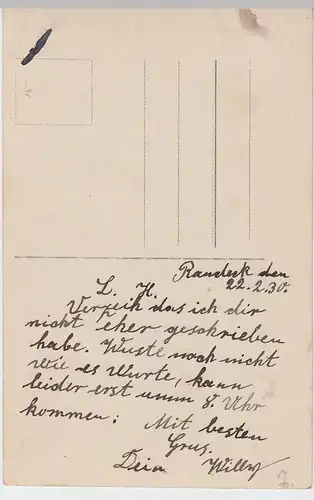 Randeck den
22.2.30.
L. H.
Verzeih das ich dir
nicht eher geschrieben
habe. Wuste noch nicht
wie es wurte, kann
leider erst umm 8. Uhr
kommen: Mit besten
Grus.
Dein Willy